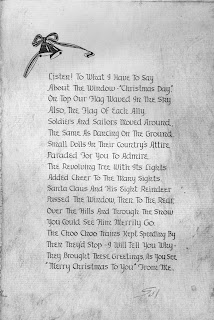 Listen! To What I Have To Say
About The Window "Christmas Day"
On Top Our Flag Waved In The Sky
Also, The Flag Of Each Ally.
Soldiers And Sailors Moved Around,
The Same As Dancing On The Ground,
Small Dolls In Their Country's Attire
Paraded For You To Admire.
The Revolving Tree With Its Lights
Added Cheer To The Many Sights.
Santa Claus And His Eight Reindeer
Passed The Window, Then To The Rear,
Over The Hills And Through The Snow
You Could See Him Merrily Go.
The Choo Choo Trains Kept Speeding By
Then They'd Stop - I Will Tell You Why -
They Brought These Greetings, As You See
"Merry Christmas To You" From Me.